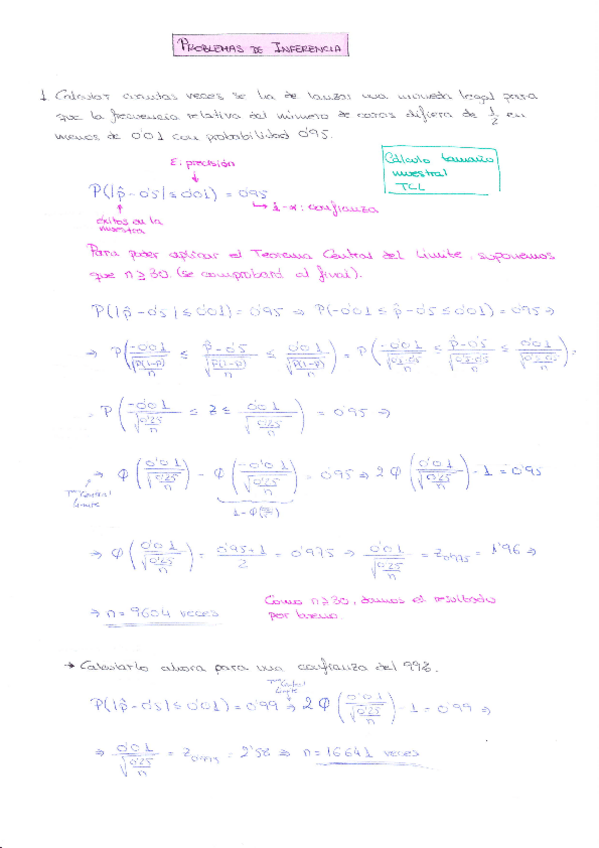 PROBLEMAS DE INFERENCIA
1 Calcular cuántas veces se ha de lanzar una moneda legal para
que la frecuencia relativa del número de caras difiera de 1/2 en
menos de 0'01 con probabilidad 0'95.
Cálculo tamaño
muestral
TCL
E: precisión
P(|p̂-0'5|≤0'01) = 0'95
↳ 1-α: confianza
éxitos en la
muestra
Para poder aplicar el Teorema Central del Límite, suponemos
que n≥30. (se comprobará al final).
P(|p̂-0'5|≤0'01)=0'95 ⇒ P(-0'01 ≤ p̂-0'5 ≤ 0'01) = 0'95 ⇒
⇒ P(-0'01/√(p(1-p)/n) ≤ p̂-0'5/√(p(1-p)/n) ≤ 0'01/√(p(1-p)/n)) = P(-0'01/√(0'5·0'5/n) ≤ p̂-0'5/√(0'5·0'5/n) ≤ 0'01/√(0'5·0'5/n)) =
= P(-0'01/√(0'25/n) ≤ Z ≤ 0'01/√(0'25/n)) = 0'95 ⇒
⇒ Φ(0'01/√(0'25/n)) - Φ(-0'01/√(0'25/n)) = 0'95 ⇒ 2Φ(0'01/√(0'25/n)) - 1 = 0'95
Tma Central
Límite
⇒ Φ(0'01/√(0'25/n)) = 0'95+1/2 = 0'975 ⇒ 0'01/√(0'25/n) = Z0'975 = 1'96 ⇒
⇒ n = 9604 veces
Como n≥30, damos el resultado
por bueno.
→ Calcularlo ahora para una confianza del 99%.
Tma Central
Límite
P(|p̂-0'5|≤0'01) = 0'99 ⇒ 2Φ(0'01/√(0'25/n)) - 1 = 0'99 ⇒
⇒ 0'01/√(0'25/n) = = 2'58 ⇒ n = 16641 veces